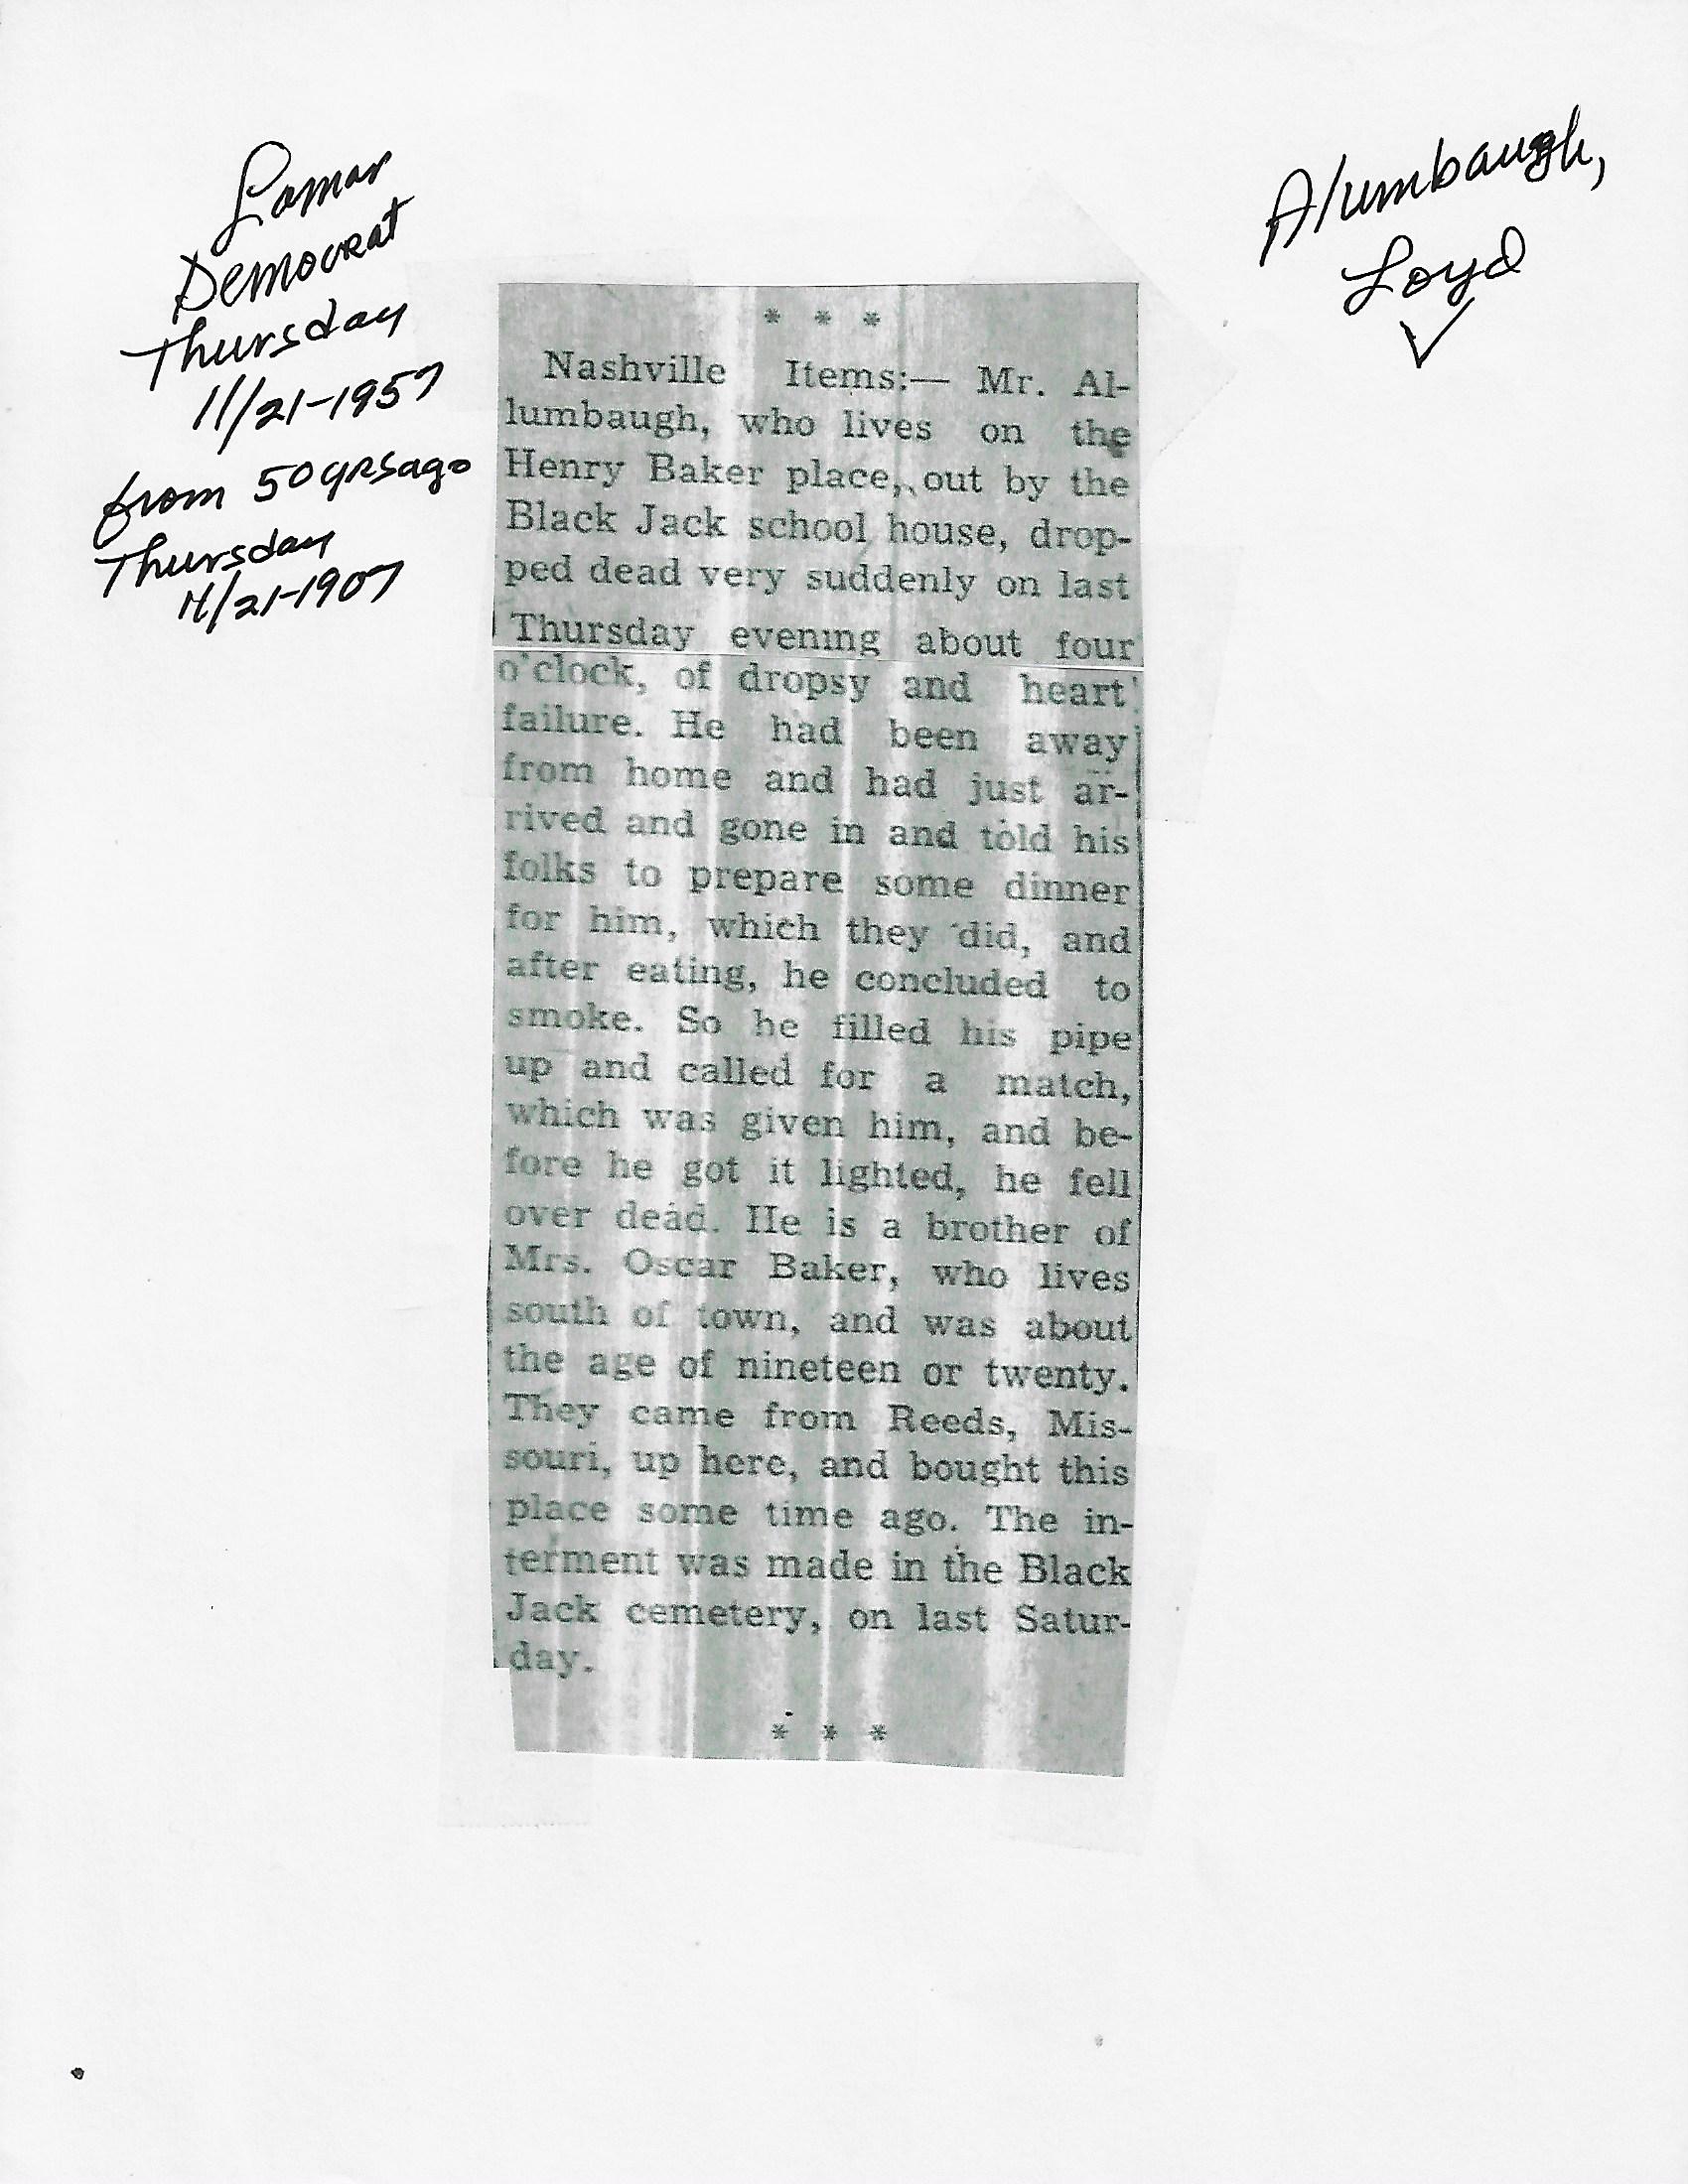 Lamar
Democrat
Thursday
11/21-1957
from 50 yrs ago
Thursday
11/21-1907
Alumbaugh,
Loyd
✓
* * *
Nashville Items:— Mr. Al-
lumbaugh, who lives on the
Henry Baker place, out by the
Black Jack school house, drop-
ped dead very suddenly on last
Thursday evening about four
o'clock, of dropsy and heart
failure. He had been away
from home and had just ar-
rived and gone in and told his
folks to prepare some dinner
for him, which they did, and
after eating, he concluded to
smoke. So he filled his pipe
up and called for a match,
which was given him, and be-
fore he got it lighted, he fell
over dead. He is a brother of
Mrs. Oscar Baker, who lives
south of town, and was about
the age of nineteen or twenty.
They came from Reeds, Mis-
souri, up here, and bought this
place some time ago. The in-
terment was made in the Black
Jack cemetery, on last Satur-
day.
* * *